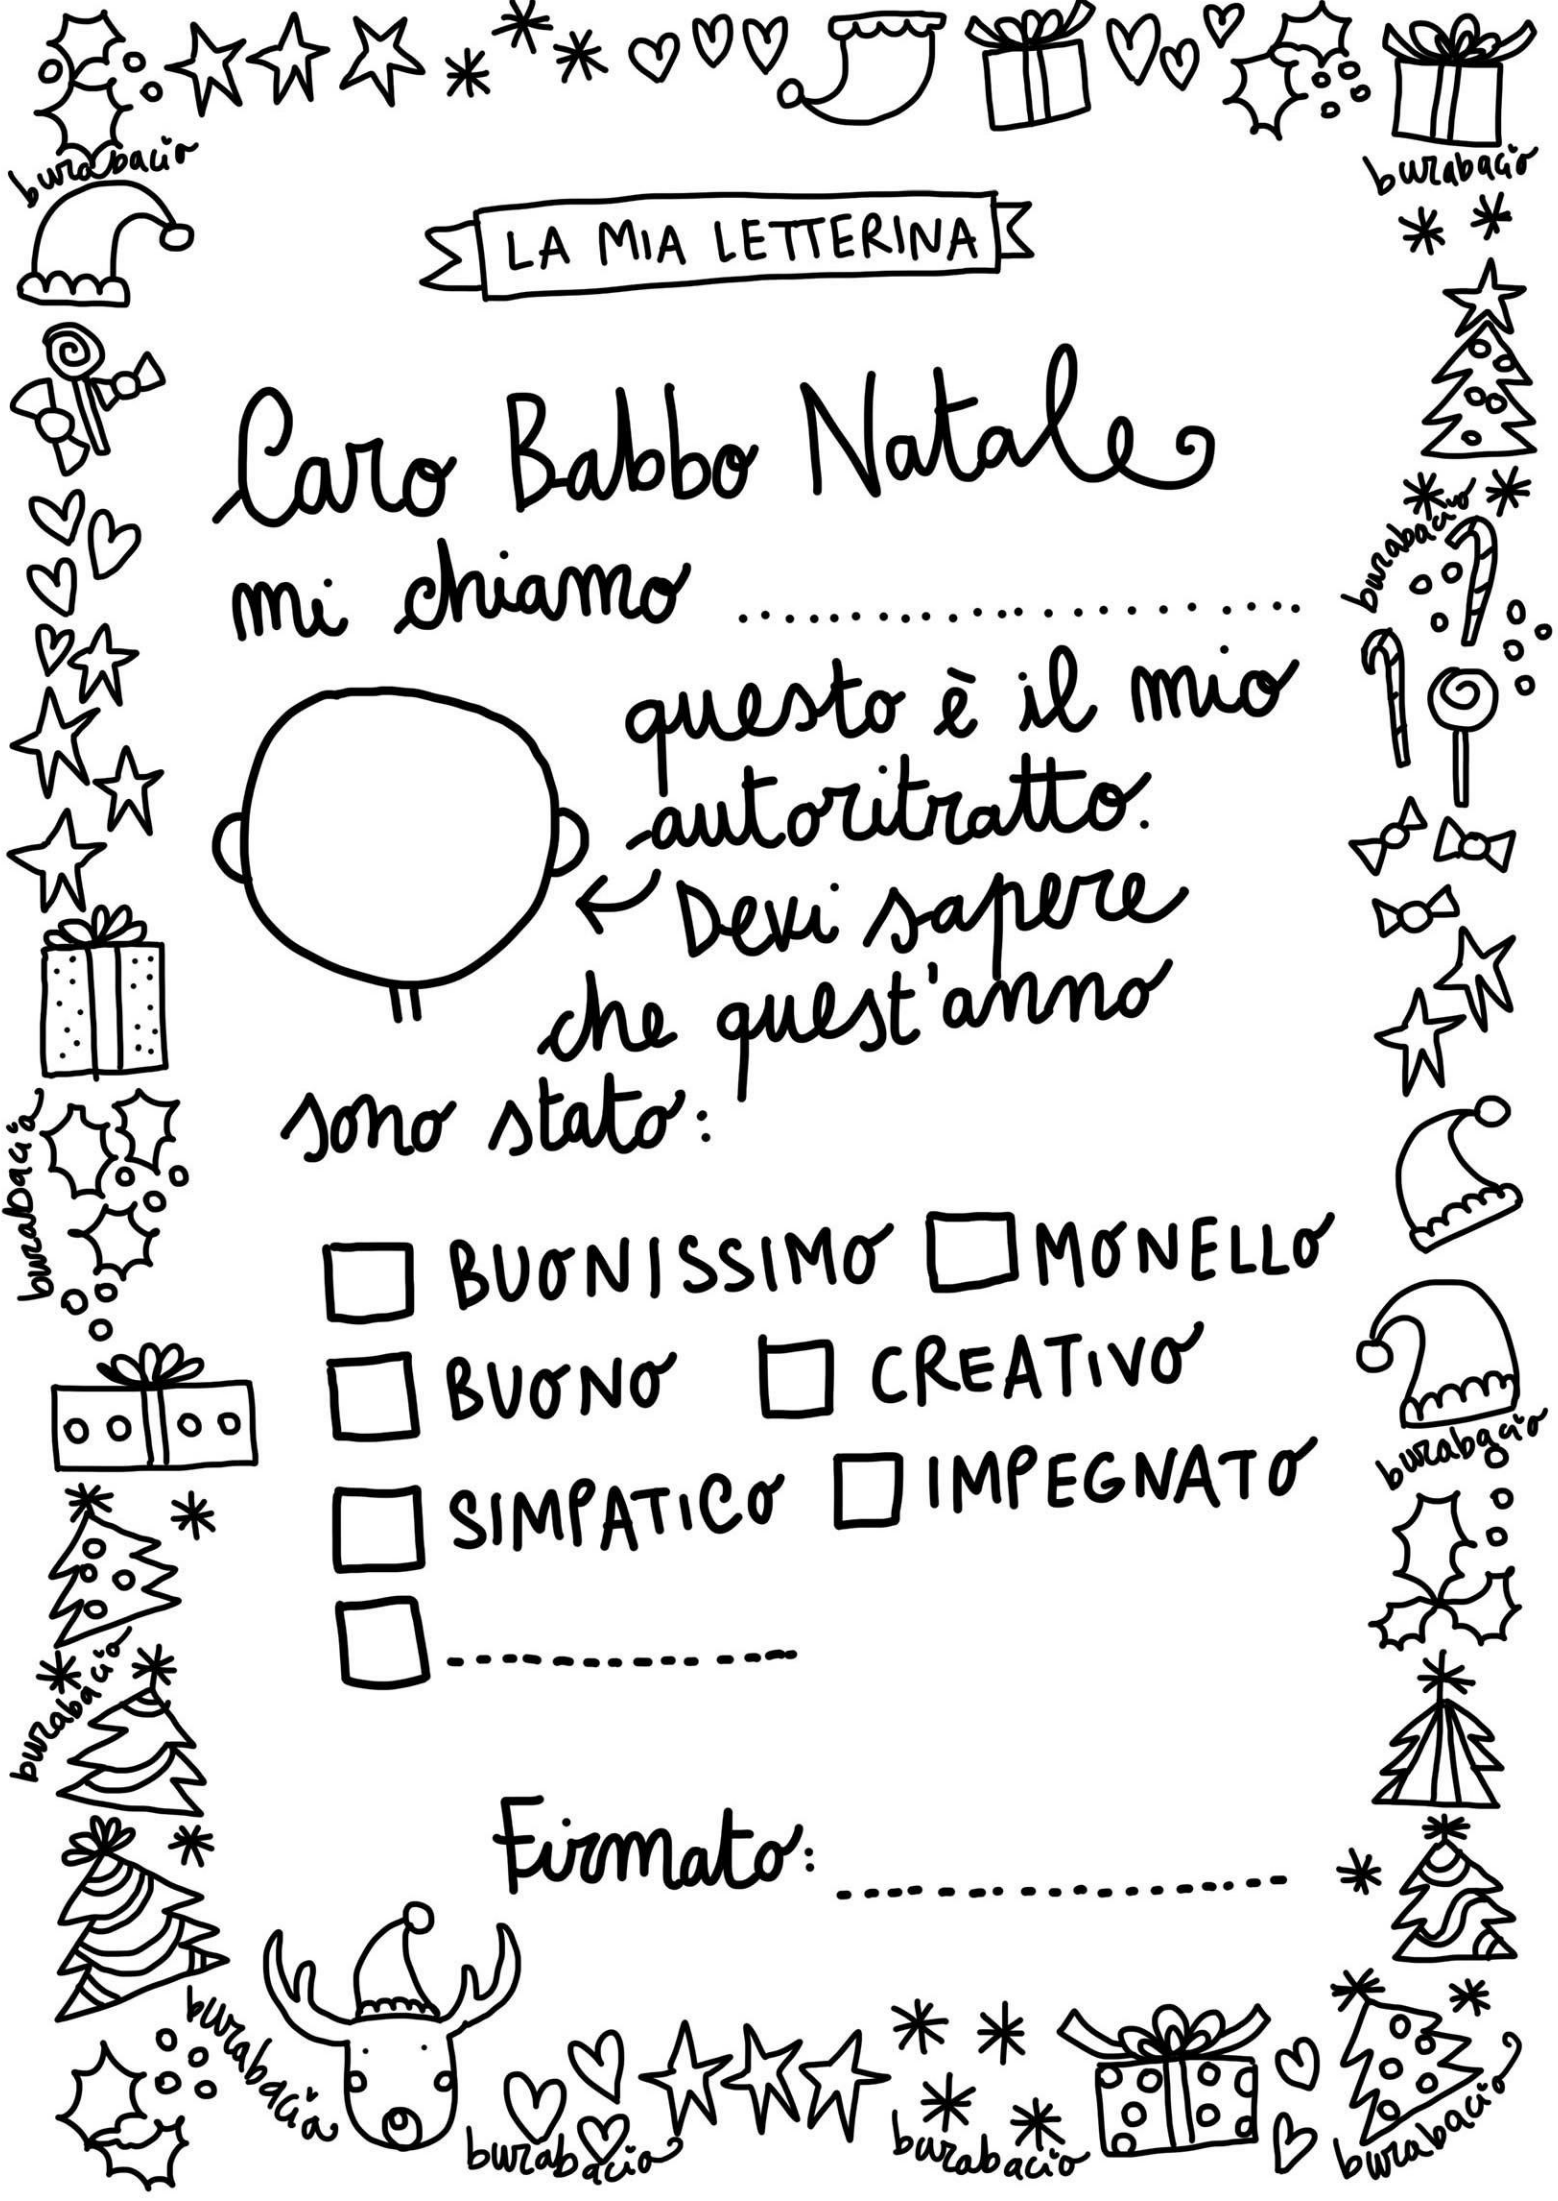 burabacio
burabacio
LA MIA LETTERINA
Caro Babbo Natale
mi chiamo ..............................
burabacio
questo è il mio
autoritratto.
Devi sapere
che quest'anno
sono stato:
burabacio
BUONISSIMO MONELLO
BUONO CREATIVO
burabacio
SIMPATICO IMPEGNATO
burabacio
Firmato:
burabacio
burabacio
burabacio
burabacio